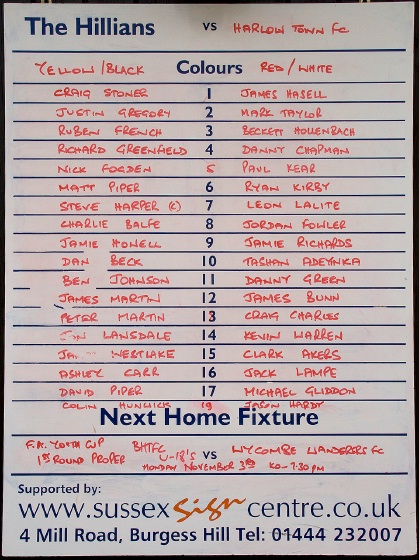 The Hillians vs HARLOW TOWN FC
YELLOW/BLACK Colours RED/WHITE
CRAIG STONER 1 JAMES HASELL
JUSTIN GREGORY 2 MARK TAYLOR
RUBEN FRENCH 3 BECKETT HOLLENBACH
RICHARD GREENFIELD 4 DANNY CHAPMAN
NICK FOGDEN 5 PAUL KEAR
MATT PIPER 6 RYAN KIRBY
STEVE HARPER (C) 7 LEON LALITE
CHARLIE BALFE 8 JORDAN FOWLER
JAMIE HOWELL 9 JAMIE RICHARDS
DAN BECK 10 TASHAN ADEYINKA
BEN JOHNSON 11 DANNY GREEN
JAMES MARTIN 12 JAMES BUNN
PETER MARTIN 13 CRAIG CHARLES
LANSDALE 14 KEVIN WARREN
WESTLAKE 15 CLARK AKERS
ASHLEY CARR 16 JACK LAMPE
DAVID PIPER 17 MICHAEL GLIDDON
COLIN HUNWICK JASON HARDY
Next Home Fixture
F.A. YOUTH CUP BHTFC vs WYCOMBE WANDERERS FC
1ST ROUND PROPER U-18'S
MONDAY NOVEMBER 3RD KO-7:30PM
Supported by:
www.sussexsigncentre.co.uk
4 Mill Road, Burgess Hill Tel: 01444 232007